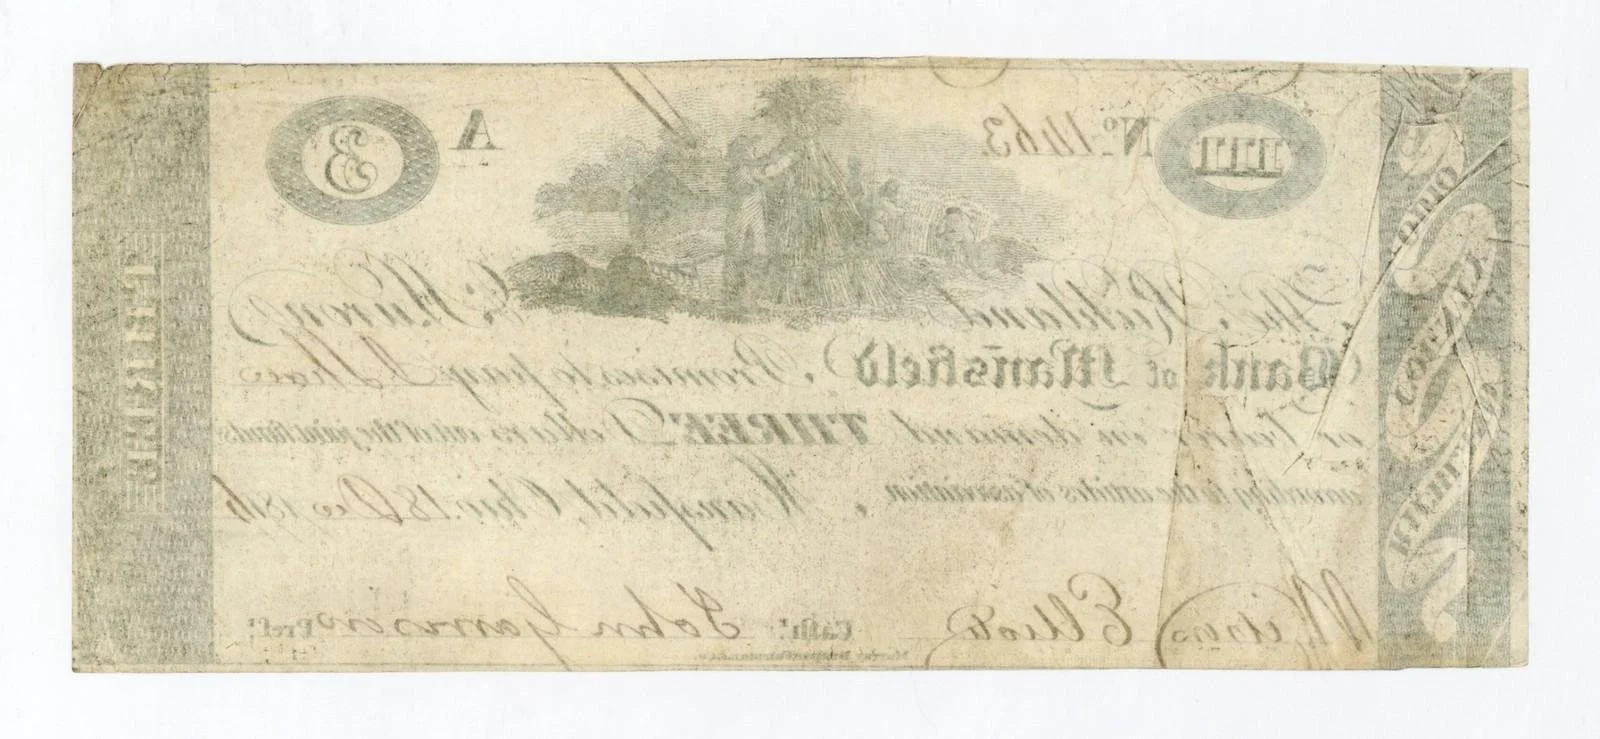 OHIO
RICHLAND COUNTY
III
No. 1463
A
3
THREE
The Richland & Huron
Bank of Mansfield, Promises to pay I. Shaw
or bearer on demand THREE Dollars out of the joint funds
according to the articles of association.
Mansfield, Ohio. 18 Dec 1816
Elliott Cash.r John Garrison Pres.t